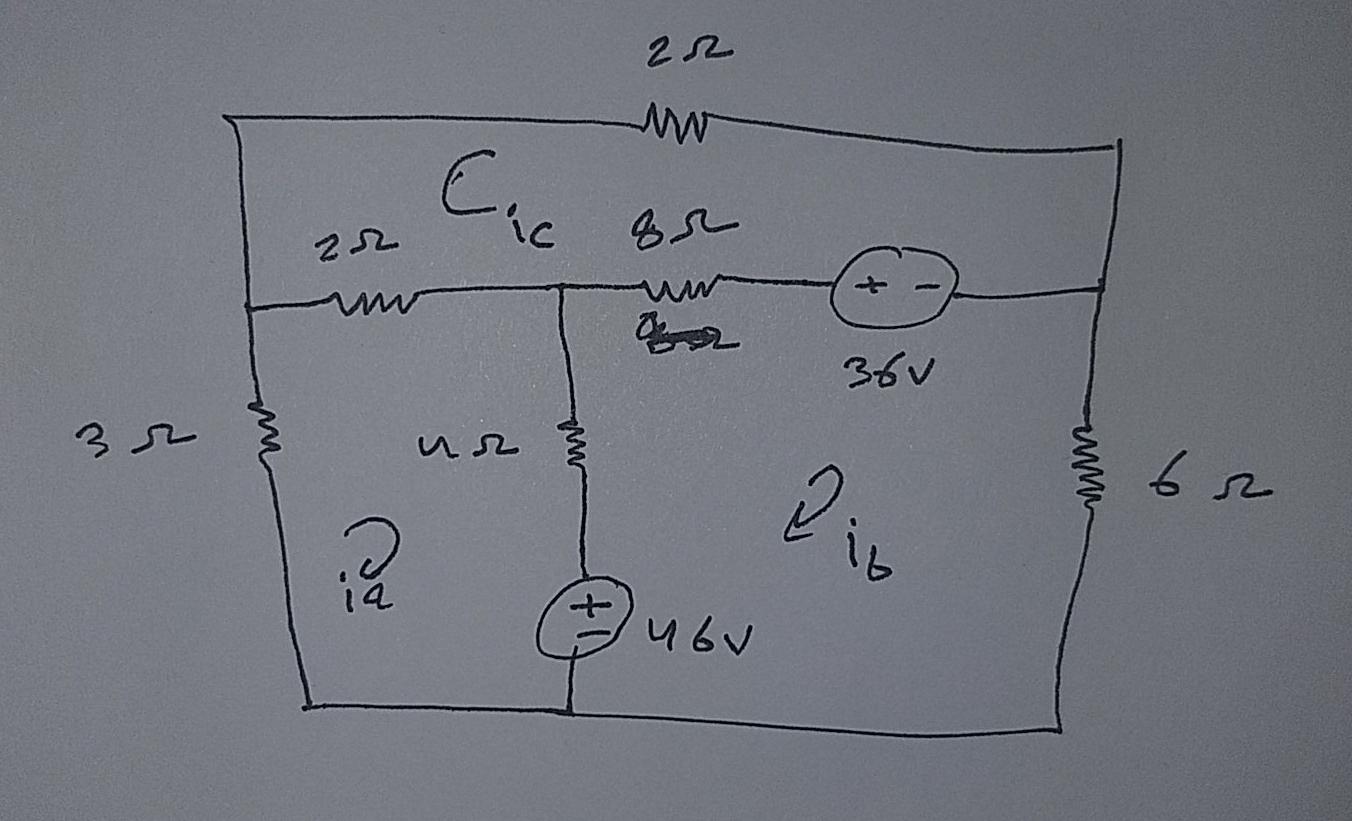 2Ω
ic
2Ω
8Ω
+ -
36V
3Ω
4Ω
6Ω
ia
ib
+
-
46V